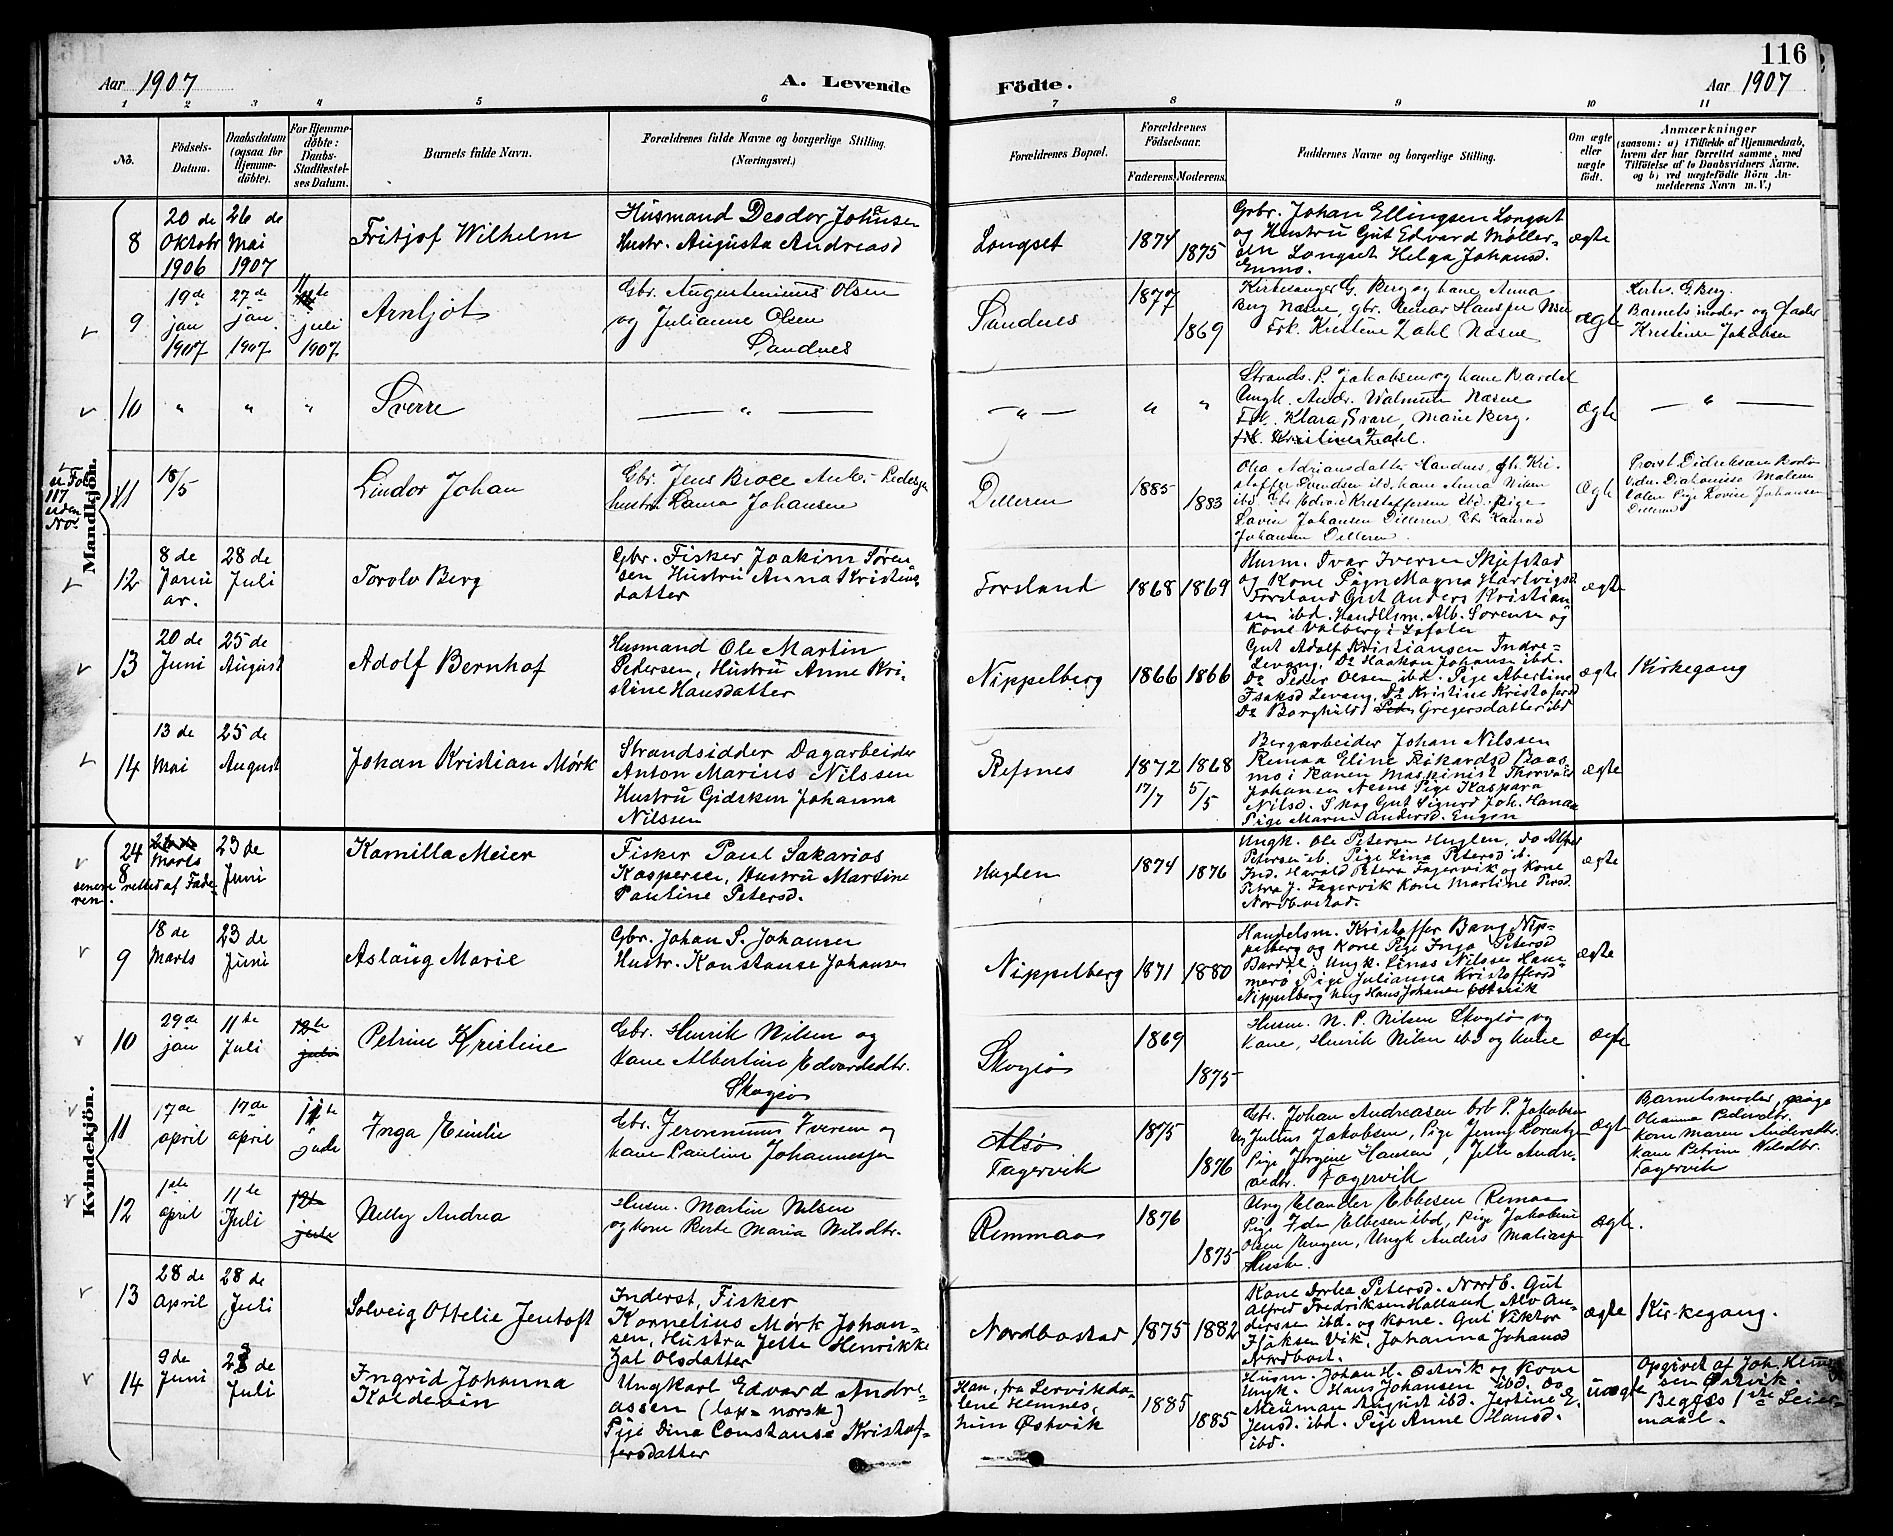 116
Aar 1907
A. Levende Födte.
Aar 1907
1 2 3 4 5 6 7 8 9 10 11
No.
Födsels-Datum.
Daabsdatum (ogsaa for Hjemme-döbte).
For Hjemme-döbte: Daabs-Stadfæstel-ses Datum.
Barnets fulde Navn.
Forældrenes fulde Navne og borgerlige Stilling.
(Næringsvei.)
Forældrenes Bopæl.
Forældrenes Födselsaar.
Faderens. Moderens.
Faddernes Navne og borgerlige Stilling.
Om ægte eller uægte födt.
Anmærkninger
(saasom: a) i Tilfælde af Hjemmedaab,
hvem der har forrettet samme, med
Tilföielse af to Daabsvidners Navne,
og b) ved uægtefödte Börn An-
melderens Navn m. V.)
Mandkjön.
8
20 de
Oktobr
1906
26 de
Mai
1907
Fritjof Wilhelm
Husmand Deodor Johansen
Hustr. Augusta Andreasd
Longset
1874
1875
Grbr. Johan Ellingsen Longset
og Hustru Gut Edvard Møller-
sen Longset Helga Johansd.
Enmo.
ægte
9
19de
jan
1907
27de
jan.
1907
11
juli
1907
Arnljot
Gbr. Augustenius Olsen
og Julianne Olsen
Sandnes
Sandnes
1877
1869
Kirkesanger G. Berg og kane Anna
Berg Næsne, gbr. Einar Hansen
Frk. Kristine Zahl Næsne
ægte
Kirkes. G. Berg.
Barnets moder og fader
Kristine Jakobsen
10
" " "
Sverre
— " —
— " —
" "
Strands. P. Jakobsen og kane Bardal
Ungk. Andr. Næsne
Frk. Klara Svare, Marie Berg.
frk. Kristine Zahl.
ægte
— " —
11
18/5
Lindor Johan
Gbr. Jens Broce Pedersen
hustru Laura Johansen
Dilleren
1885
1883
Olea Adriansdatter
stoffer Svendsen ibd, kane Anna Nilsen
ibd Gbr Edvard Kristoffersen ibd. pige
Johansen Dilleren Gbr Konrad
Johansen Dilleren.
Ægte
Provst Didriksen
Pige Lovise Johansen
Dilleren
12
8 de
Janu
ar.
28 de
Juli
Torolv Berg
Gbr. Fisker Joakim Søren-
sen Hustru Anna Kristine
datter
Forsland
1868
1869
Husm. Ivar Iversen Skjefstad
og Kone Pigen Magna Hartvigsd
Forsland Gut Anders Kristian
sen ibd. Handelsm. Alb. Sørensen og
Kone Valberg i Lofoten
ægte
13
20 de
Juni
25 de
August
Adolf Bernhof
Husmand Ole Martin
Pedersen, Hustru Anne Kri-
stine Hansdatter
Nippelberg
1866
1866
Gut Adolf Kristiansen Indre-
Levang. Do Haakon Johansen ibd.
Do Peder Olsen ibd. Pige Albertine
Isaksd Levang. Do Kristine Kristofersd
Do Borghild Gregersdatter ibd
ægte
Kirkegang
14
13 de
Mai
25 de
August
Johan Kristian Mørk
Strandsidder Dagarbeider
Anton Marius Nilssen
Hustru Gidsken Johanna
Nilssen
Refsnes
1872
17/7
1868
5/5
Bergarbeider Johan Nilssen
Remaa Eline Rikardsd Baas-
mo i Ranen Maskinist Thorvald
Johansen Nesne Pige Kaspara
Nilsd. Skog Gut Sigurd Joh. Hanaa
Pige Maren Andersd. Engen
ægte
Kvindekjön.
8
24
Marts
senere rettet af Fade-
ren.
23 de
Juni
Kamilla Meier
Fisker Paul Sakarias
Kaspersen, Hustru Martine
Pauline Petersd.
Huglen
1874
1876
Ungk. Ole Petersen Huglen, do Alfred
Petersen ib. Pige Lina Petersd ib.
Ind. Harald Peters Fagervik og Kone
Petra J. Fagervik Kone Martine Persd.
Nordbostad.
ægte
9
18 de
Marts
23 de
Juni
Aslaug Marie
Gbr. Johan P. Johansen
Hustr. Konstanse Johansen
Nippelberg
1871
1880
Handelsm. Kristoffer Bang Nip-
pelberg og Kone Pige Inga Petersd
Bardal. Ungk. Linas Nilssen Ham-
merö Pige Julianna Kristoffersd
Nippelberg Ung Hans Johansen Østvik
ægte
10
29de
jan
11te
Juli
12te
juli
Petrine Kristine
Gbr. Henrik Nilsen og
kane Albertine Edvardsdtr.
Skogsö
Skogsö
1869
1875
Husm. N. P. Nilsen Skogsö og
Kane, Henrik Nilsen ibd og kane
ægte
11
17de
april
17de
april
11te
Inga Emilie
Gbr. Jeronimus Iversen og
kane Pauline Johannessen
Alsö
Fagervik
1875
1876
Gbr. Johan Andreasen P. Jakobsen
Julius Jakobsen, Pige Jenny Lorentzen
Pige Jørgine Hansen, Jette Andre-
asdtr. Fagervik
ægte
Barnets moder, pige
Oleanna Pedersdtr.
kone Maren Andersdtr.
kane Petrine Nilsdtr.
Fagervik
12
1ste
april
11te
Juli
12te
Nelly Andrea
Husm. Martin Nilsen
og kone Berte Maria Nilsdtr.
Remmaa
1876
1875
Ung Elander Ebbesen Remaa
Pige Ida Ebbesen ibd, Pige Jakobine
Olsen Engen, Ungk Anders Matiasen
Husby.
ægte.
13
28 de
April
28 de
Juli
Solveig Ottelie Jentoft
Inderst, Fisker
Kornelius Mørk Johan-
sen, Hustru Jette Henrikke
Zal Olsdatter
Nordbostad
1875
1882
Kone Dorhea Petersd. Nordb. Gut
Alfred Fredriksen Halland Alv An-
derssen ibd. og Kone. Gut Viktor
Isaksen Vik, Johanna Johansd
Nordbost.
ægte
Kirkegang.
14
9 de
Juni
28 de
Juli
Ingrid Johanna
Koldevin
Ungkarl Edvard Andre-
assen (lap = norsk)
Pige Dina Constanse Kristof-
fersdatter
Han, fra Lervikda-
lene Hemnes,
hun Østvik
1885
1885
Husm. Johan H. Østvik og Kone
Ungk. Hans Johansen ibd Do
Neuman August ibd. Jertine E.
Jensd. ibd. Pige Anne Hansd.
ibd.
uægte
Opgivet af Joh. Henrik
sen Østvik.
Begges 1ste Leier-
maal.